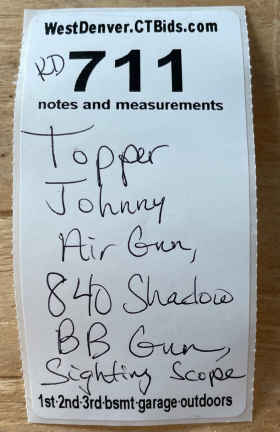 WestDenver.CTBids.com
KD 711
notes and measurements
Topper
Johnny
Air Gun,
840 Shadow
BB Gun,
Sighting Scope
1st·2nd·3rd·bsmt·garage·outdoors